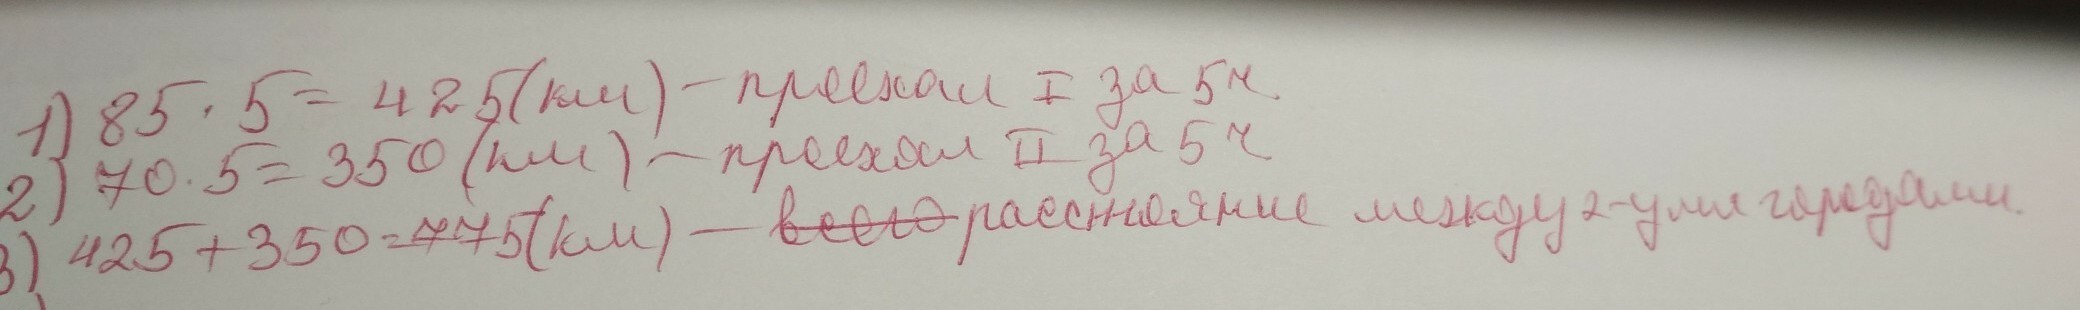 1) 85 · 5 = 425 (км) – проехал I за 5 ч
2) 70 · 5 = 350 (км) – проехал II за 5 ч
3) 425 + 350 = 775 (км) – всего расстояние между 2-умя городами.